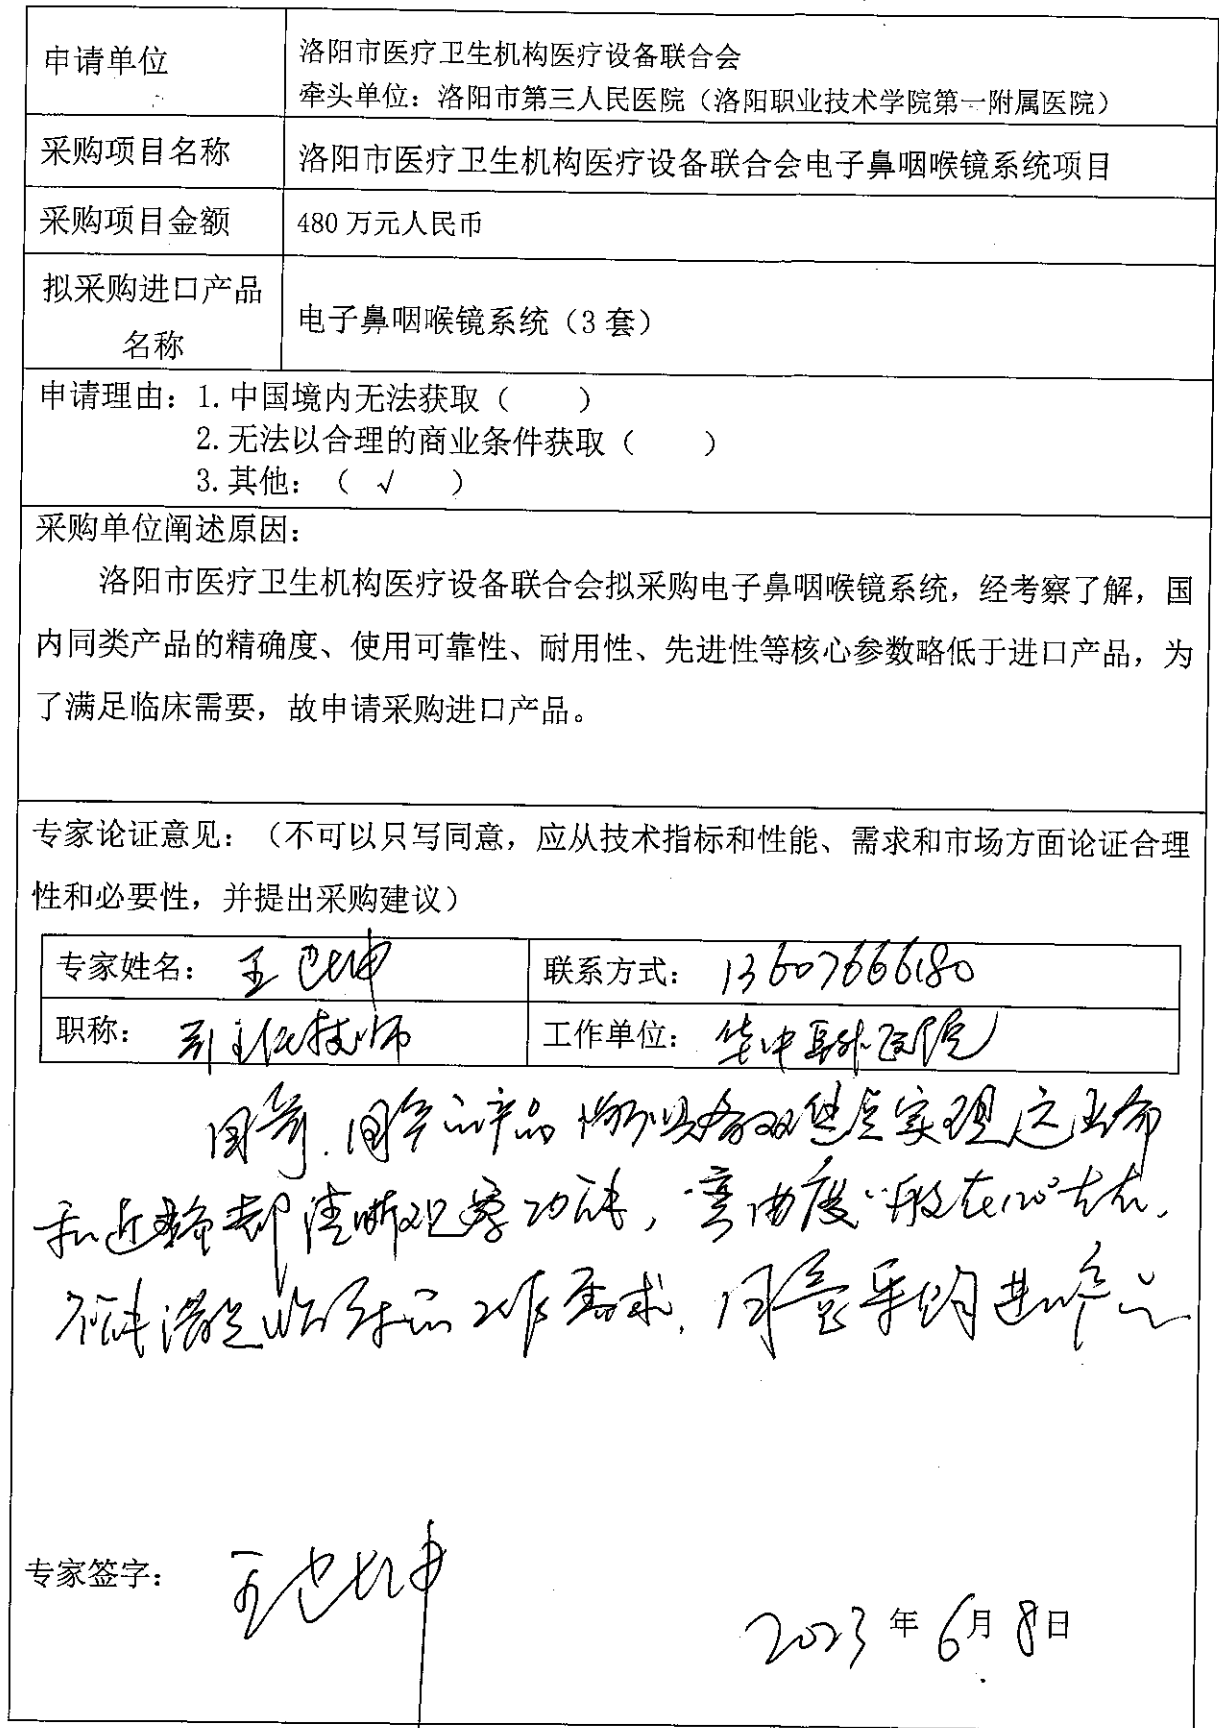 申请单位
洛阳市医疗卫生机构医疗设备联合会
牵头单位：洛阳市第三人民医院（洛阳职业技术学院第一附属医院）
采购项目名称
洛阳市医疗卫生机构医疗设备联合会电子鼻咽喉镜系统项目
采购项目金额
480 万元人民币
拟采购进口产品
名称
电子鼻咽喉镜系统（3 套）
申请理由：1. 中国境内无法获取（　　）
2. 无法以合理的商业条件获取（　　）
3. 其他：（ √ ）
采购单位阐述原因：
洛阳市医疗卫生机构医疗设备联合会拟采购电子鼻咽喉镜系统，经考察了解，国
内同类产品的精确度、使用可靠性、耐用性、先进性等核心参数略低于进口产品，为
了满足临床需要，故申请采购进口产品。
专家论证意见：（不可以只写同意，应从技术指标和性能、需求和市场方面论证合理
性和必要性，并提出采购建议）
专家姓名：王 坤
联系方式：13607666180
职称：副主任技师
工作单位：华中 医院
产品 具备双焦点实现远
和近 都清晰观察功能，弯曲度一般在120°左右，
不能满足临床 工作需求，同意采购进口产品
专家签字：王 坤
2023 年 6月 8日